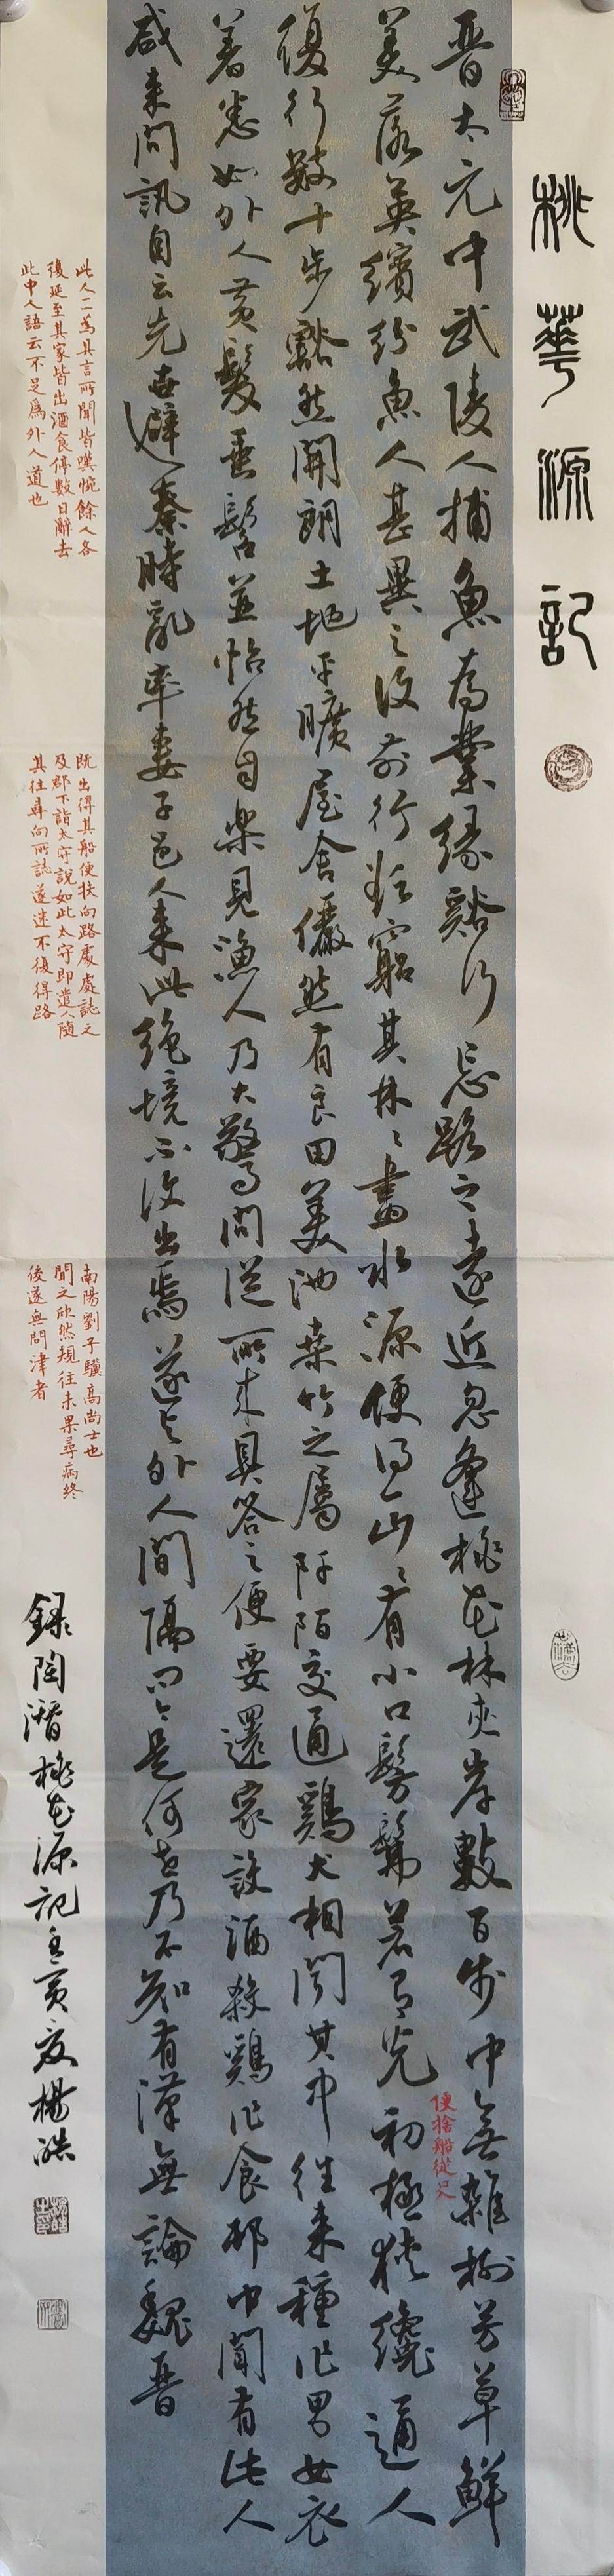 桃華源記
晋太元中武陵人捕魚為業緣谿行忘路之遠近忽逢桃花林夾岸數百步中無雜樹芳草鮮
美落英繽紛魚人甚異之復前行欲窮其林々盡水源便得一山々有小口髣髴若有光初極狹纔通人
便捨船從口入
復行數十步豁然開朗土地平曠屋舍儼然有良田美池桑竹之屬阡陌交通鷄犬相聞其中往来種作男女衣
著悉如外人黄髮垂髫並怡然自樂見漁人乃大驚問從所来具答之便要還家設酒殺鷄作食邨中聞有此人
咸来問訊自云先世避秦時亂率妻子邑人来此絶境不復出焉遂与外人間隔問今是何世乃不知有漢無論魏晋
此人一一為具言所聞皆嘆惋餘人各
復延至其家皆出酒食停數日辭去
此中人語云不足為外人道也
既出得其船便扶向路處處誌之
及郡下詣太守説如此太守即遣人隨
其往尋向所誌遂迷不復得路
南陽劉子驥高尚士也
聞之欣然規往未果尋病終
後遂無問津者
録陶潛桃花源記
楊